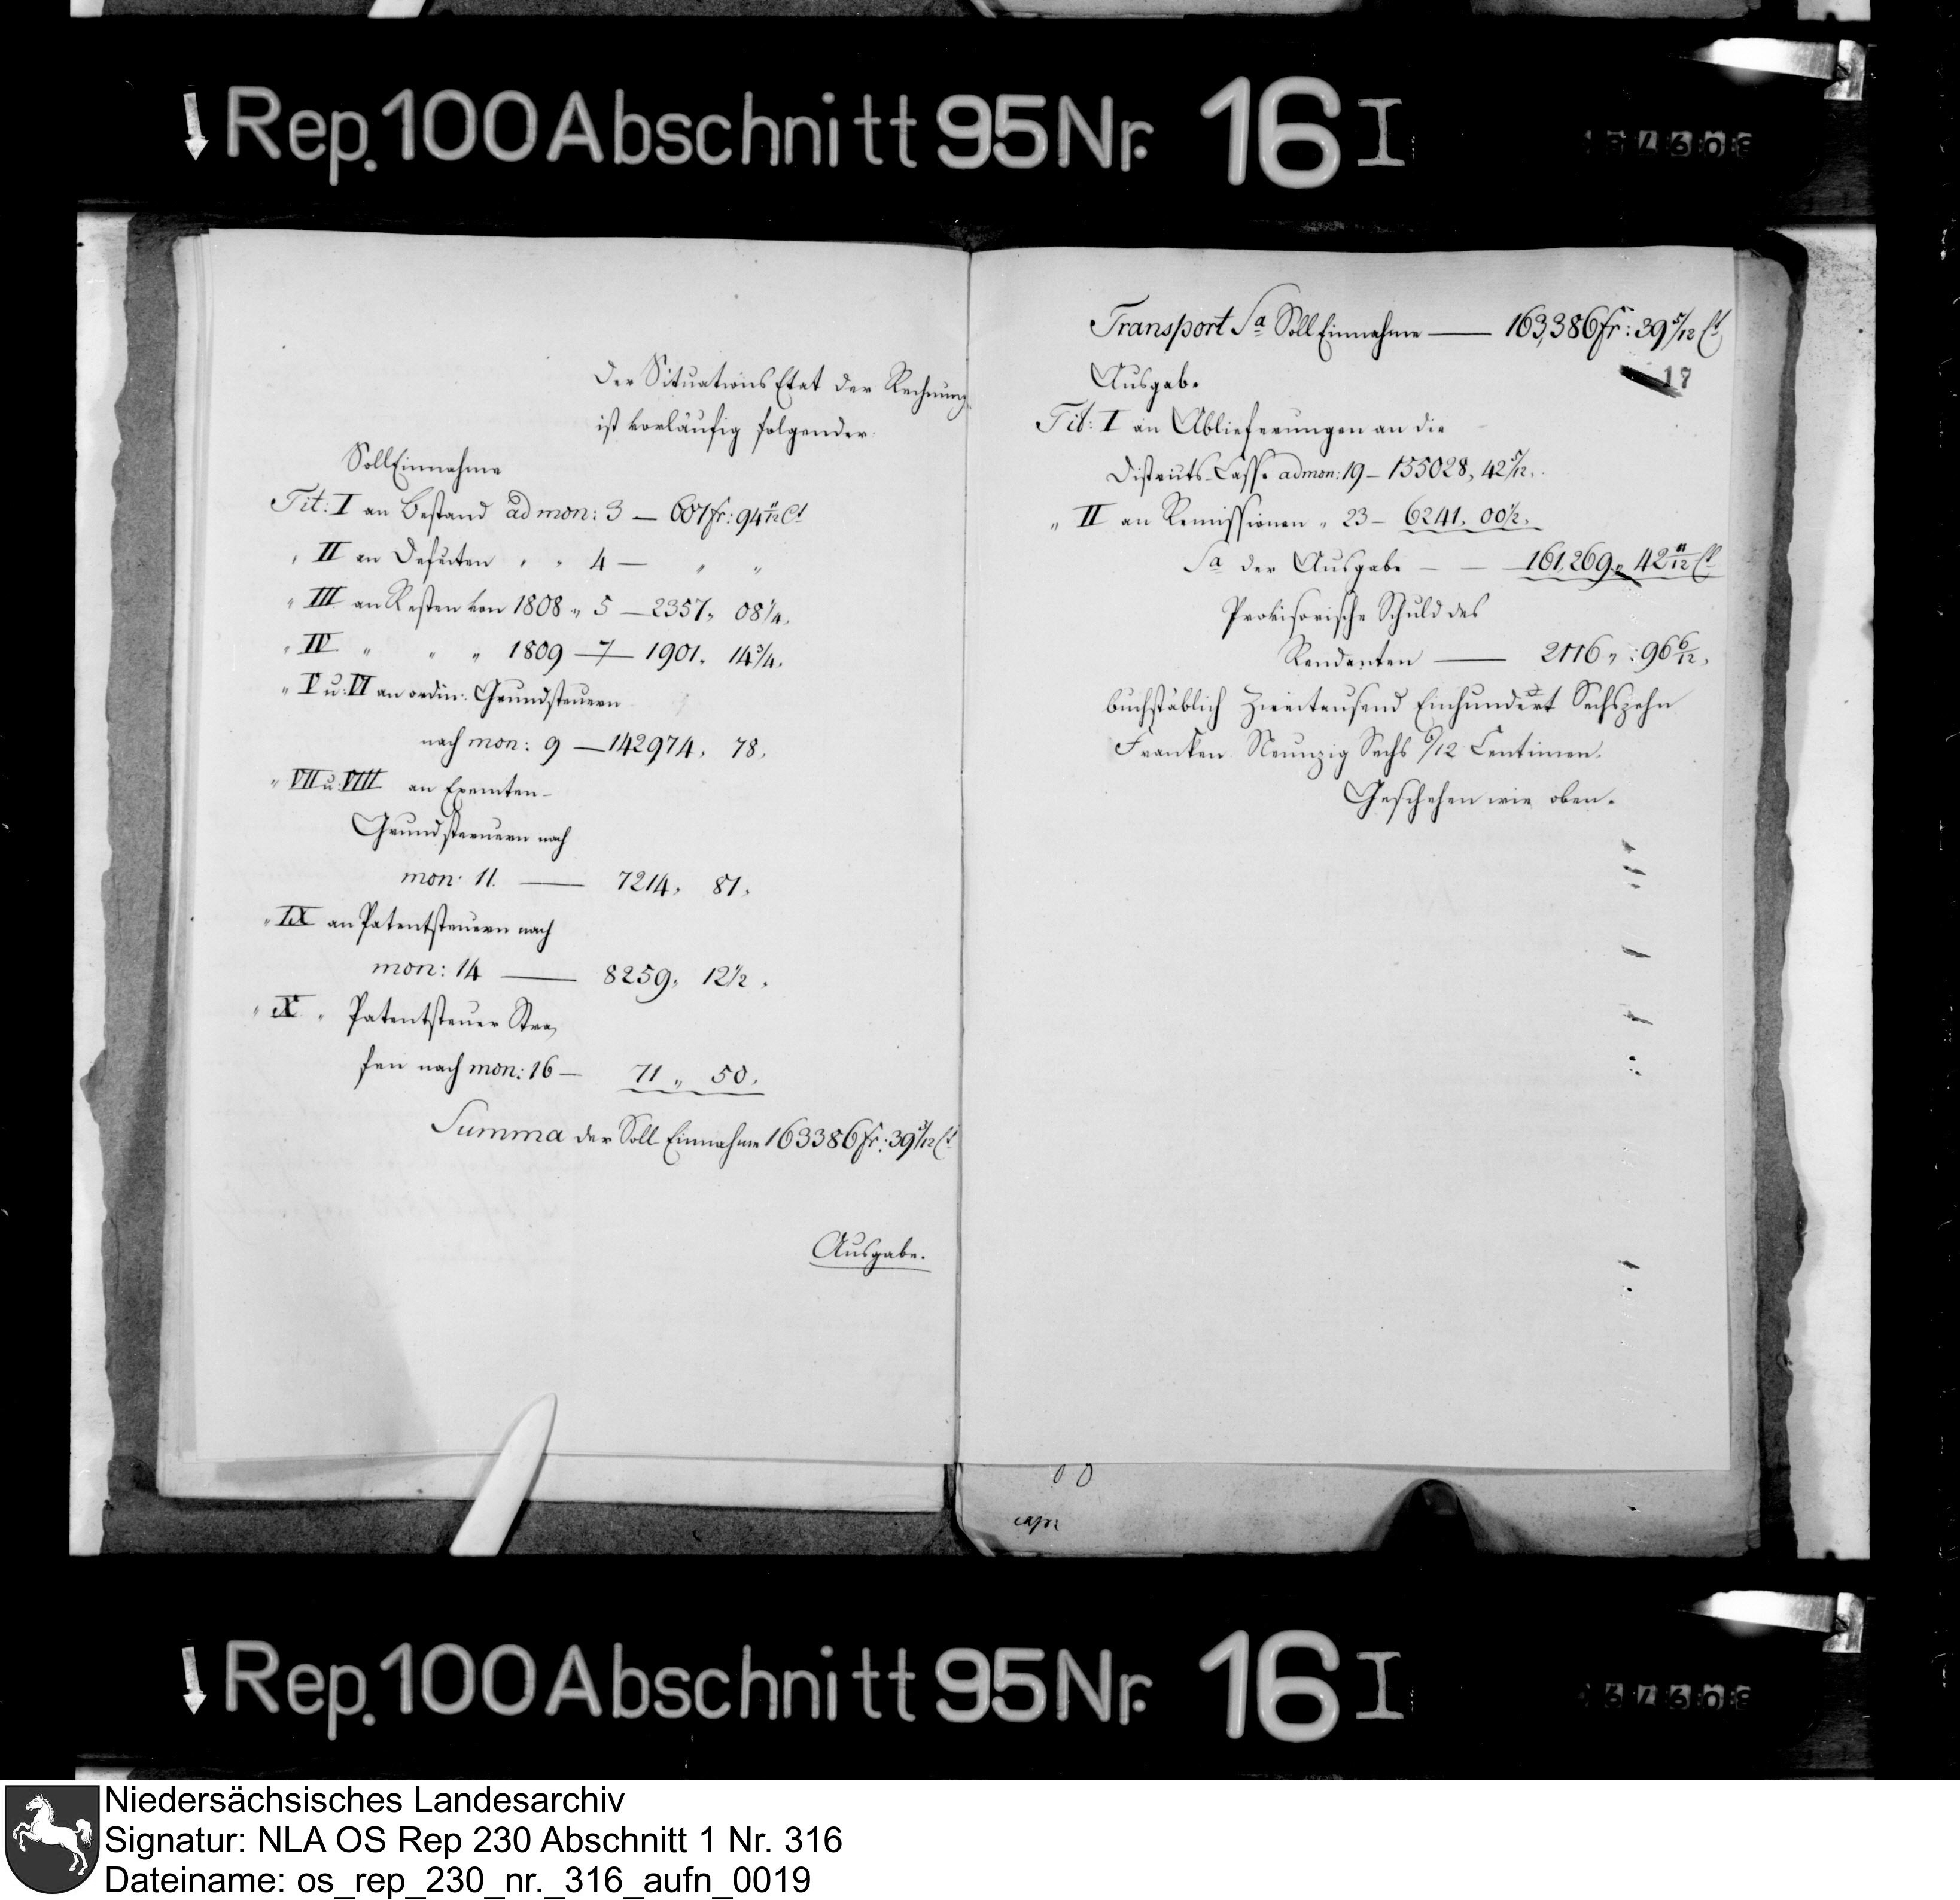 Rep. 100 Abschnitt 95 Nr. 16 I
Der Situations Etat der Rechnung
ist vorläufig folgender:
Soll Einnahme
Tit: I an Bestand ad mon: 3 — 607 fr: 94 11/12 Ct
„ II an Defecten „ „ 4 — „ „
„ III an Resten von 1808 „ 5 — 2357 „ 08 1/4 „
„ IV „ „ „ 1809 — 7 — 1901 „ 14 3/4 „
„ V u: VI an ordin: Grundsteuern
nach mon: 9 — 142974 „ 78 „
„ VII u: VIII an Exemten-
Grundsteuern nach
mon: 11. — 7214 „ 81 „
„ IX an Patentsteuern nach
mon: 14 — 8259 „ 12 1/2 „
„ X „ Patentsteuer Stra,
fen nach mon: 16 — 71 „ 50 „
Summa der Soll Einnahme 163386 fr: 39 5/12 Ct
Ausgabe.
Transport Sa Soll Einnahme — 163,386 fr: 39 5/12 Ct
17
Ausgabe
Tit: I an Ablieferungen an die
Districts-Casse ad mon: 19 — 155028 „ 42 5/12 „
„ II an Remissionen „ 23 — 6241 „ 00 1/2 „
Sa der Ausgabe — — 161,269 „ 42 11/12 Ct
Provisorische Schuld des
Rendanten — 2116 „ : 96 6/12 „
buchstäblich Zweitausend Einhundert Sechszehn
Franken Neunzig Sechs 6/12 Centimen.
Geschehen wie oben.
Rep. 100 Abschnitt 95 Nr. 16 I
Niedersächsisches Landesarchiv
Signatur: NLA OS Rep 230 Abschnitt 1 Nr. 316
Dateiname: os_rep_230_nr._316_aufn_0019